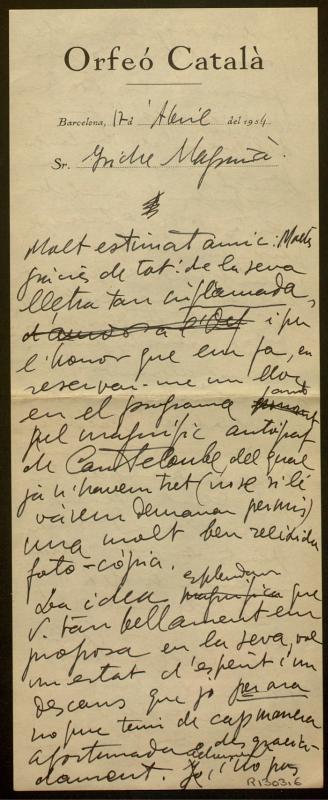 Orfeó Català
Barcelona, 17 d' Abril del 1934
Sr. Magriñà.
Molt estimat amic: Moltes
gràcies de tot: de la seva
lletra tan inflamada,
i per
l'honor que em fa, en
reservar-me un lloc
en el programa amb
pel magnífic autògraf
de Canteloube, del qual
ja n'havem tret (no se si li
vàrem demanar permís)
una molt ben reeixida
foto-còpia.
La idea esplèndida magnífica que
V. tan bellament em
proposa en la seva, vol
un estat d'esperit i un
descans que jo per ara
no puc tenir de cap manera
afortunada o desgracia-
dament. Jo, i no pas
R.1303.6